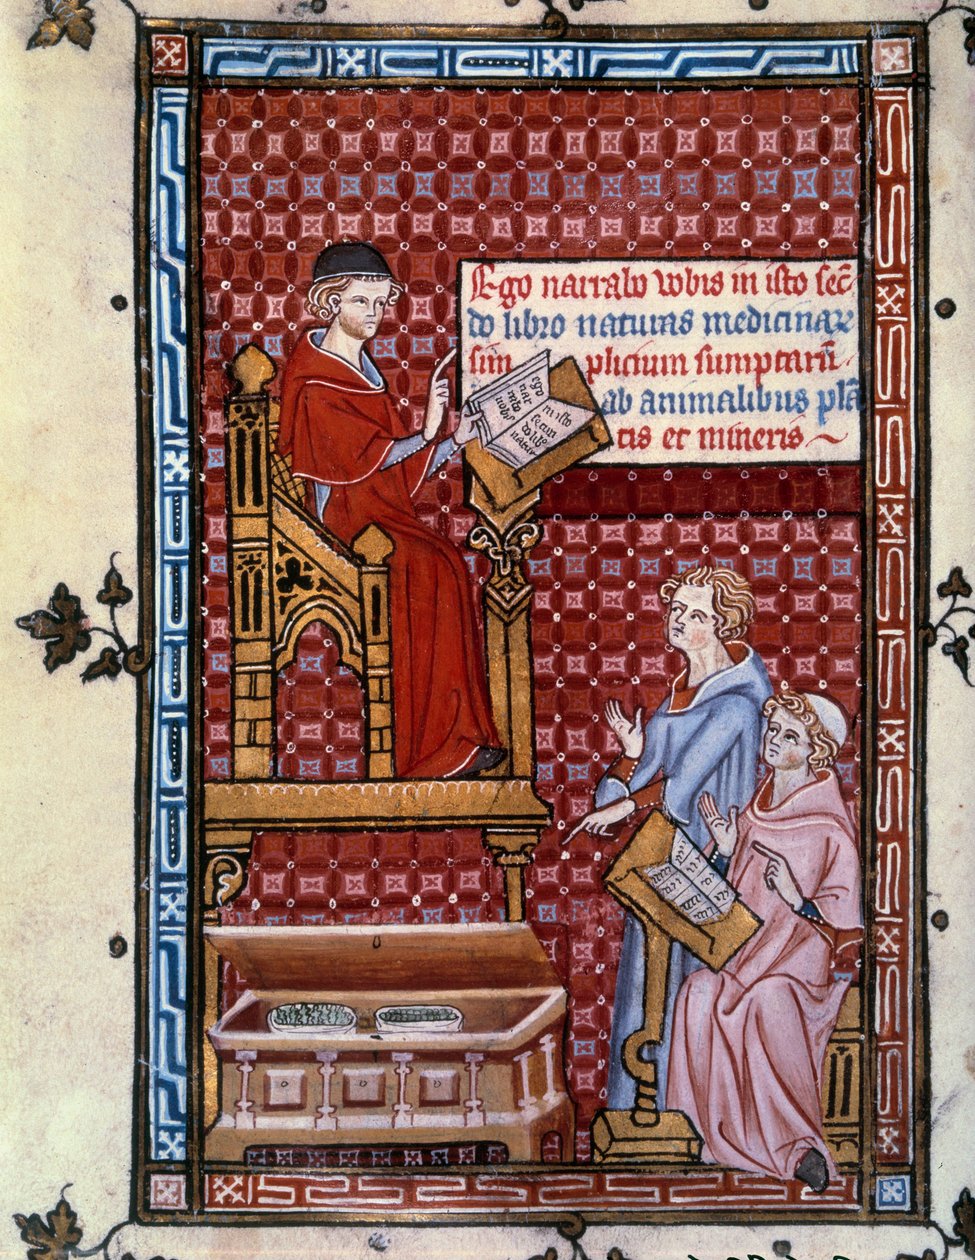 Ego narrabo vobis in isto sec̄
do libro naturas medicinar̄
sim plicium sumptarū
ab animalibus plā
tis et mineris
ego
nar
rabo
vobis
in isto
secun
do libo
natur